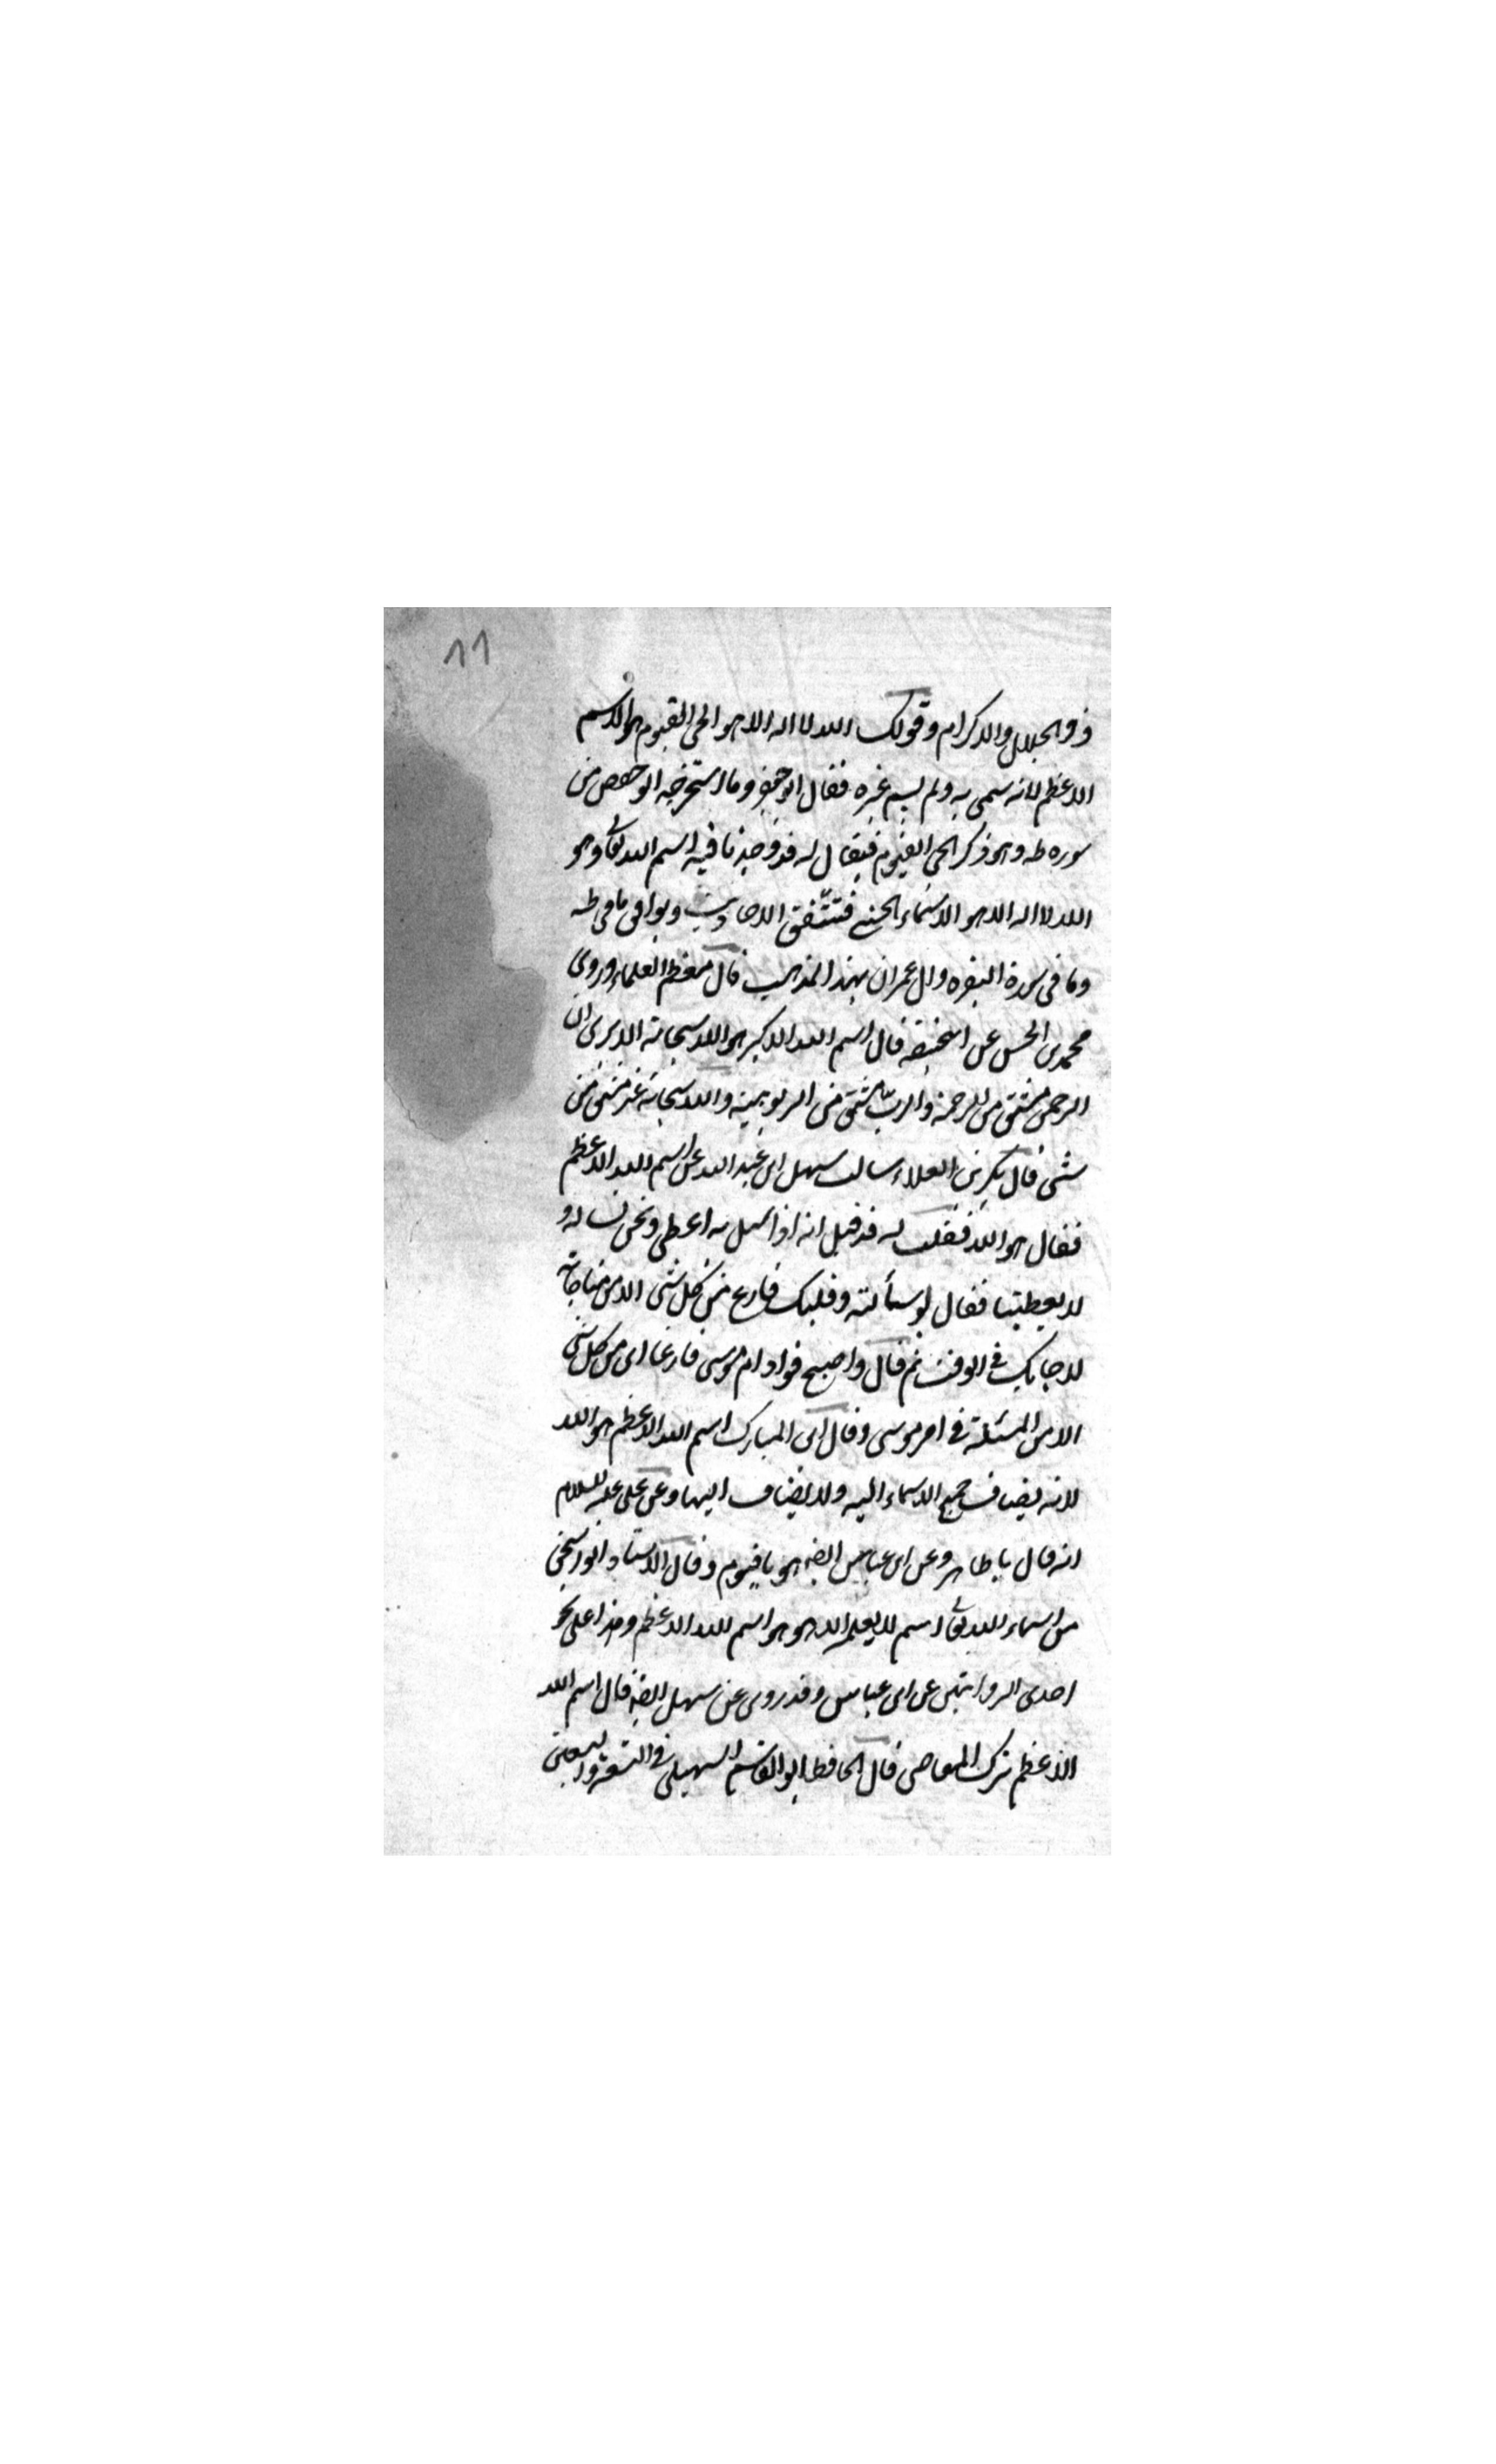 11
ذو الجلال والاكرام وقولك الله لا اله الا هو الحي القيوم هو الاسم
الاعظم لانه سمى به ولم يسم غيره فقال ابو جعفر وما استخرجه ابو حفص من
سوره طه وهو ذكر الحي القيوم فيقال له قد وجدنا فيه اسم الله تعا وهو
الله لا اله الا هو له الاسماء الحسنى فتتفق الاحاديث ويوافى ما في طه
وما في سورة البقره وال عمران بهذا المذهب قال معظم العلماء وروى
محمد بن الحسن عن ابي حنيفه قال اسم الله الاكبر هو الله سبحانه الا يرى ان
الرحمن مشتق من الرحمة والرب مشتق من الربوبية والله سبحانه غير مشتق من
شى قال بكر بن العلاء سالت سهل ابن عبد الله عن اسم الله الاعظم
فقال هو الله فقلت له قد قيل انه اذا سئل به اعطى ونحن نساله و
لا يعطينا فقال لو سألته وقلبك فارغ من كل شى الا من مناجاته
لاجابك في الوقت ثم قال واصبح فواد ام موسى فارغا اى من كل شى
الا من المسئلة في امر موسى وقال ابن المبارك اسم الله الاعظم هو الله
لانه يضاف جميع الاسماء اليه ولا يضاف اليها وعن على عليه السلام
انه قال يا طاهر وعن ابن عباس ايضا هو يا قيوم وقال الاستاد ابو اسحق
من اسماء الله تعا اسم لا يعلمه الا هو هو اسم الله الاعظم وهذا على نحو
احدى الروايتين عن ابن عباس وقد روى عن سهل ايضا قال اسم الله
الاعظم ترك المعاصى قال الحافظ ابو القاسم السهيلى في